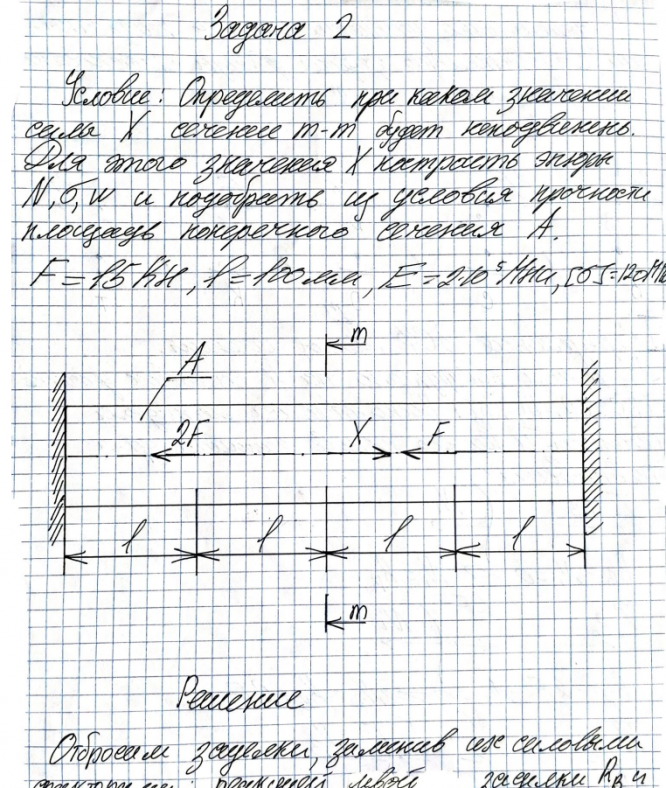 Задача 2
Условие: Определить при каком значении
силы X сечение m-m будет неподвижным.
Для этого значения X построить эпюры
N, σ, w и подобрать из условия прочности
площадь поперечного сечения A.
F = 15 кН, l = 100 мм, E = 2·10⁵ МПа, [σ] = 120 МПа
m
A
2F X F
l l l l
m
Решение
Отбросим заделки, заменив их силовыми
реакцией левой заделки R_B и